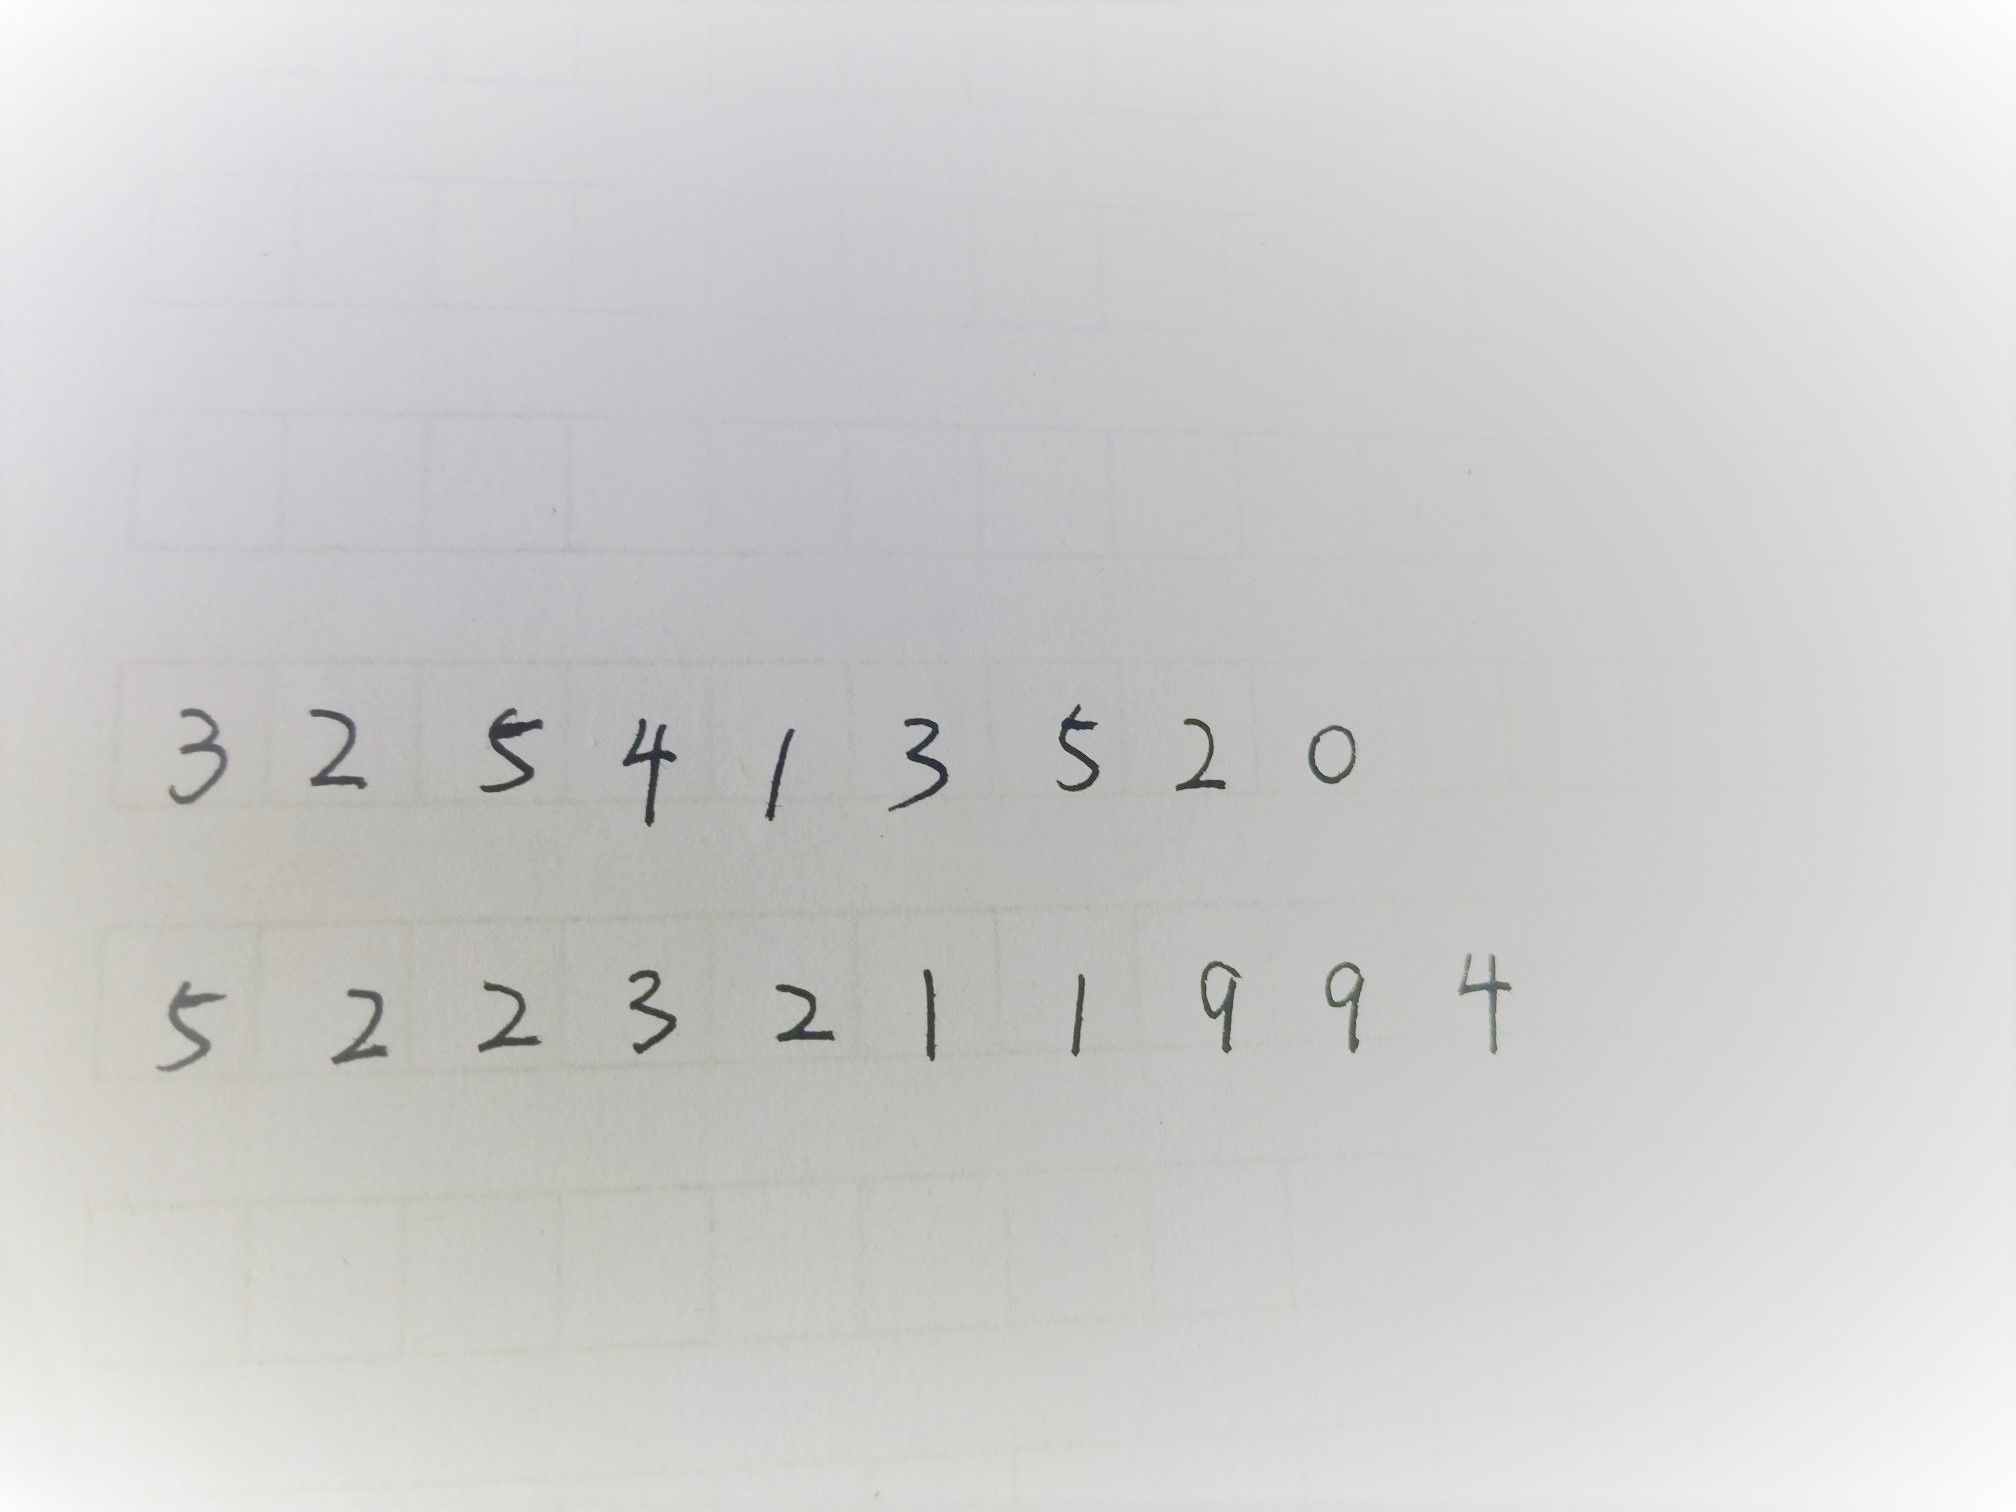 3 2 5 4 1 3 5 2 0
5 2 2 3 2 1 1 9 9 4